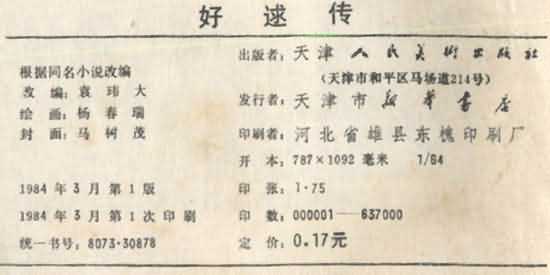 好逑传
根据同名小说改编
改编：袁玮大
绘画：杨春瑞
封面：马树茂
1984年3月第1版
1984年3月第1次印刷
统一书号：8073·30878
出版者：天津人民美術出版社
（天津市和平区马场道214号）
发行者：天津市新华書店
印刷者：河北省雄县东槐印刷厂
开本：787×1092毫米 1/64
印张：1·75
印数：000001—637000
定价：0.17元